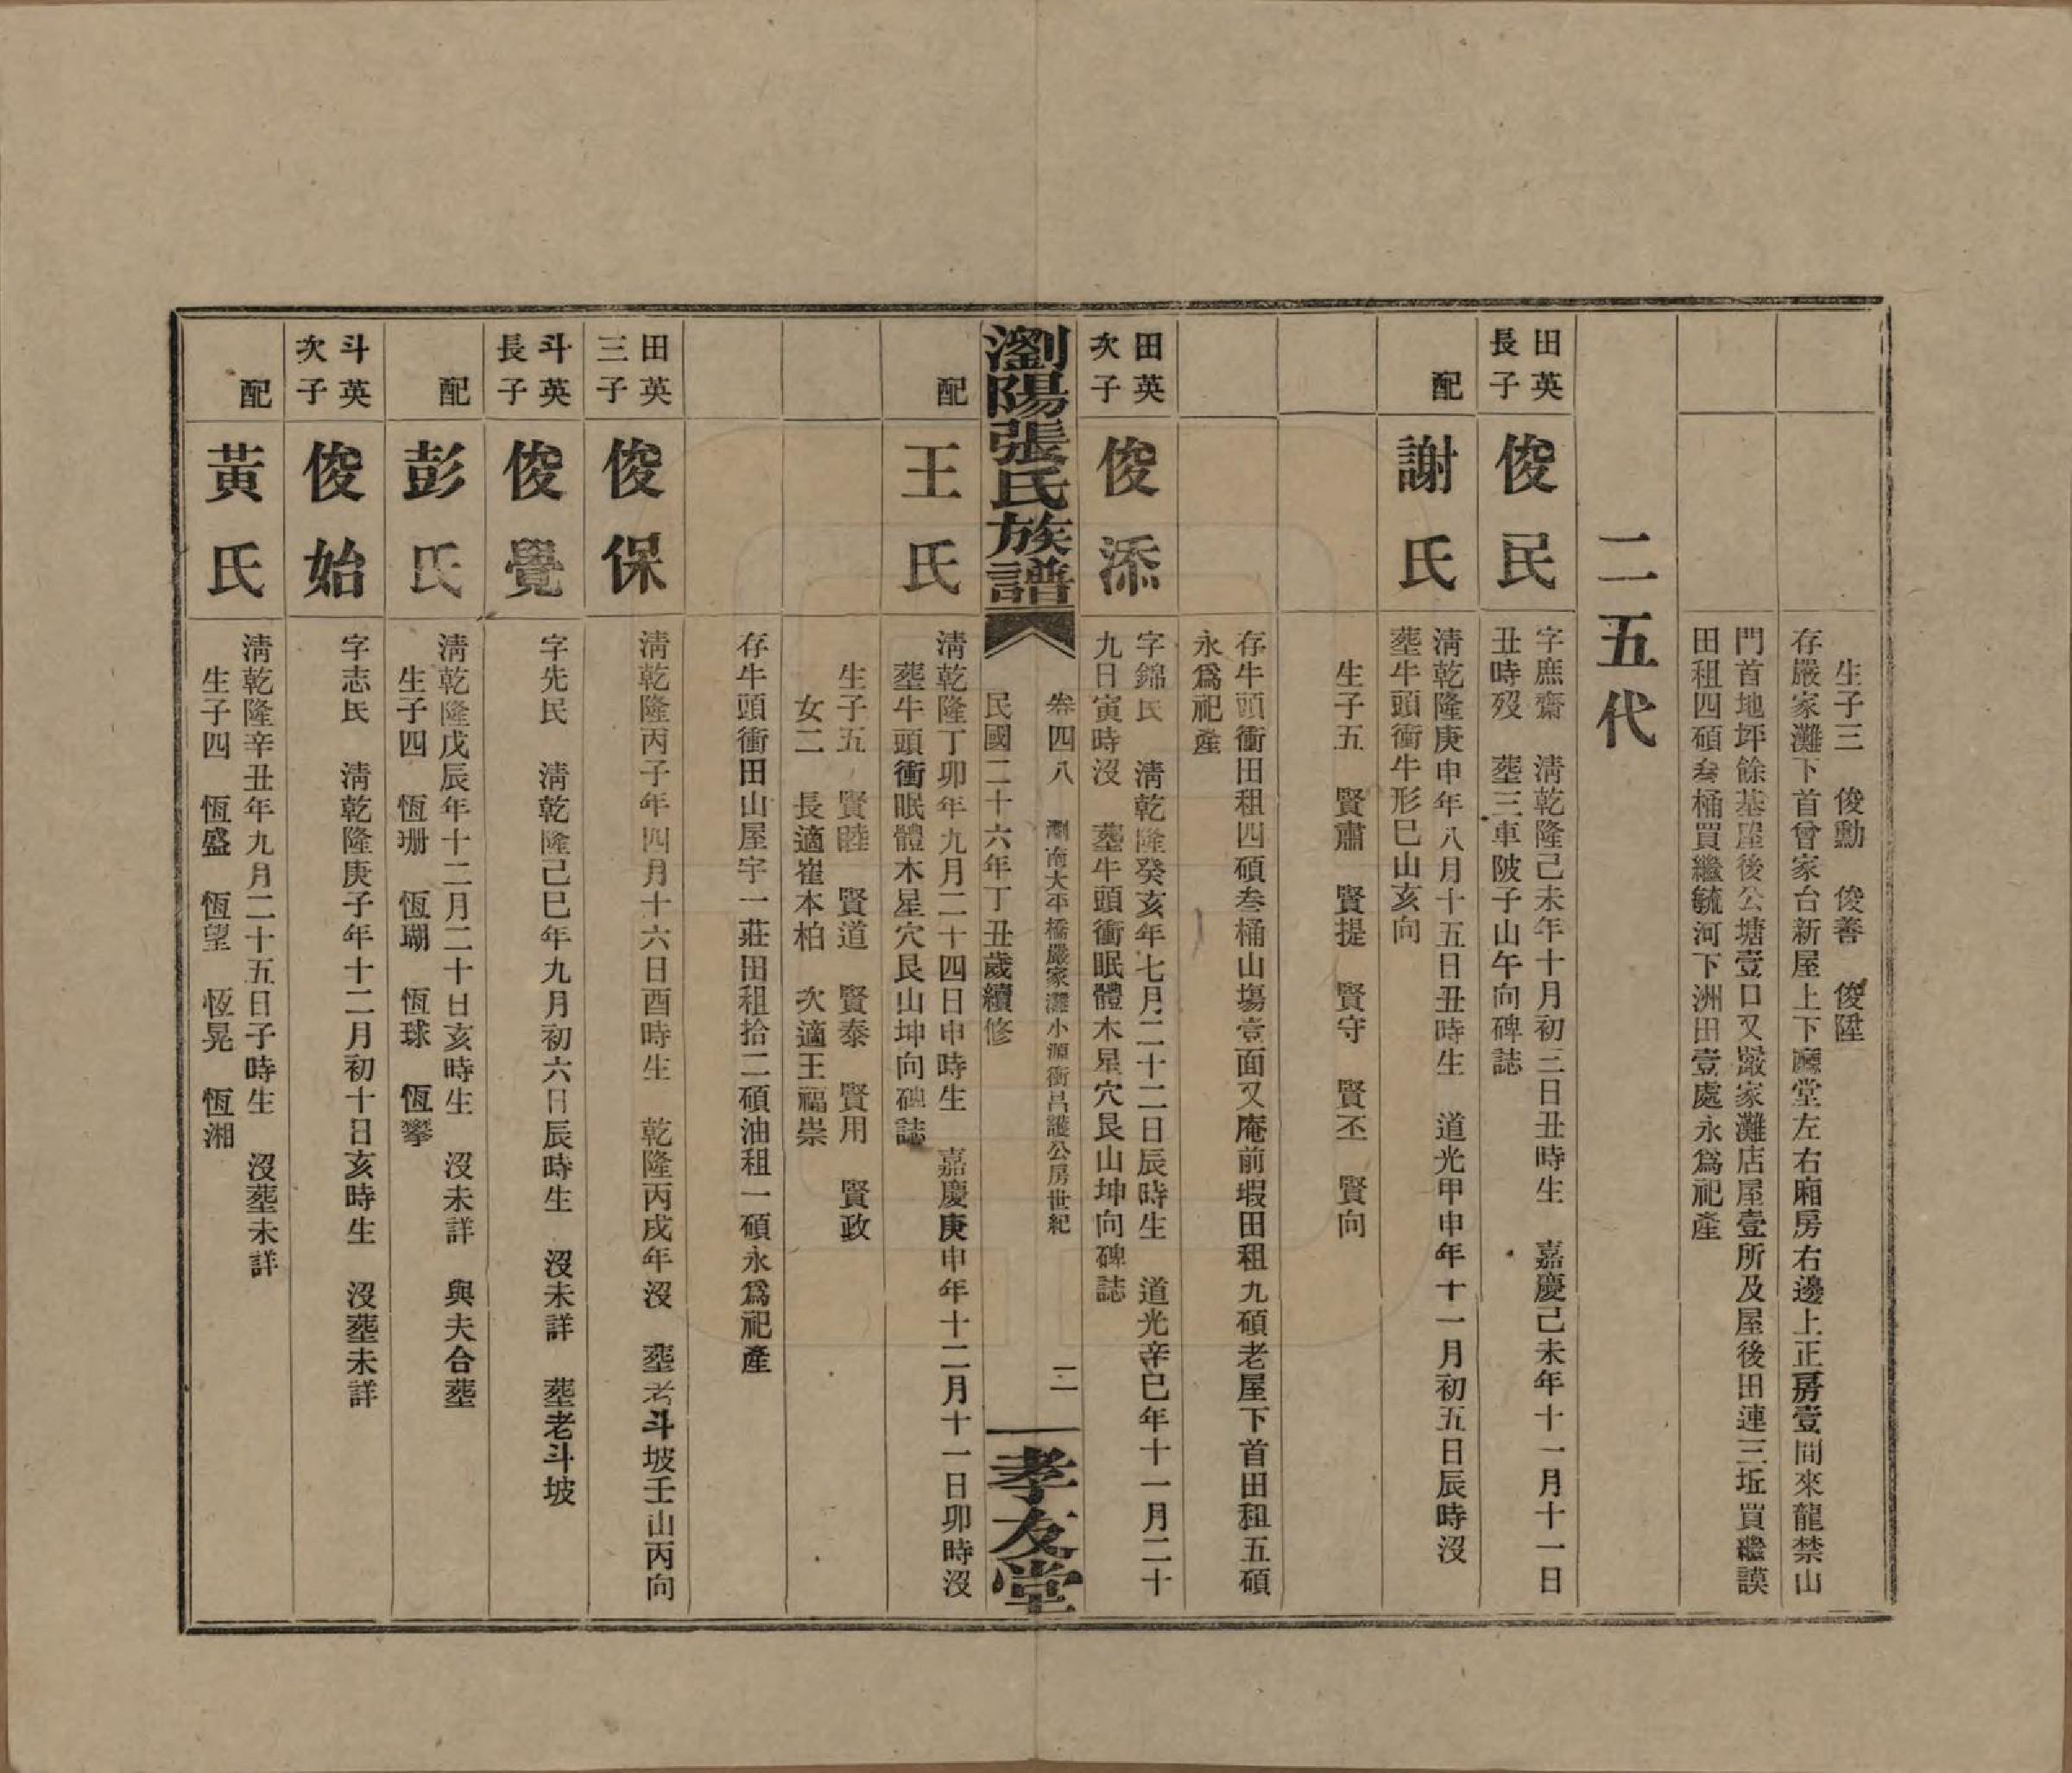 生子三　俊勳　俊善　俊陞
存嚴家灘下首曾家台新屋上下廳堂左右廂房右邊上正房壹間來龍禁山
門首地坪餘基屋後公塘壹口又嚴家灘店屋壹所及屋後田連三坵買繼謨
田租四碩叁桶買繼毓河下洲田壹處永爲祀產
二五代
田英
長子
俊民
字庶齋　淸乾隆己未年十月初三日丑時生　嘉慶己未年十一月十一日
丑時歿　塟三車陂子山午向碑誌
配
謝氏
淸乾隆庚申年八月十五日丑時生　道光甲申年十一月初五日辰時沒
塟牛頭衝牛形巳山亥向
生子五　賢肅　賢提　賢守　賢丕　賢向
存牛頭衝田租四碩叁桶山塲壹面又庵前塅田租九碩老屋下首田租五碩
永爲祀產
田英
次子
俊添
字錦民　淸乾隆癸亥年七月二十二日辰時生　道光辛巳年十一月二十
九日寅時沒　塟牛頭衝眠體木星穴艮山坤向碑誌
瀏陽張氏族譜
卷四八　瀏南大平橋嚴家灘小源衝呂護公房世紀　二
民國二十六年丁丑歲續修
孝友堂
配
王氏
淸乾隆丁卯年九月二十四日申時生　嘉慶庚申年十二月十一日卯時沒
塟牛頭衝眠體木星穴艮山坤向碑誌
生子五　賢睦　賢道　賢泰　賢用　賢政
女二　長適崔本柏　次適王福崇
存牛頭衝田山屋宇一莊田租拾二碩油租一碩永爲祀產
田英
三子
俊保
淸乾隆丙子年四月十六日酉時生　乾隆丙戌年沒　塟老斗坡壬山丙向
斗英
長子
俊覺
字先民　淸乾隆己巳年九月初六日辰時生　沒未詳　塟老斗坡
配
彭氏
淸乾隆戊辰年十二月二十日亥時生　沒未詳　與夫合塟
生子四　恆珊　恆瑚　恆球　恆攀
斗英
次子
俊始
字志民　淸乾隆庚子年十二月初十日亥時生　沒塟未詳
配
黃氏
淸乾隆辛丑年九月二十五日子時生　沒塟未詳
生子四　恆盛　恆望　恆晃　恆湘